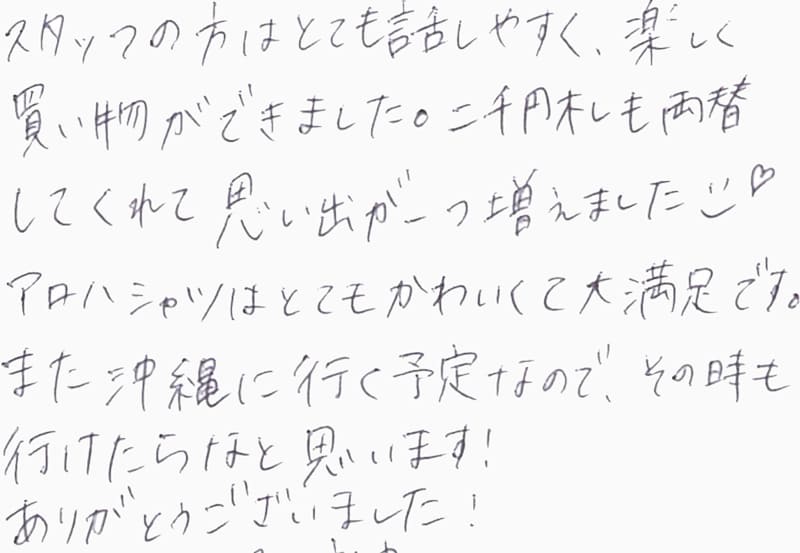 スタッフの方はとても話しやすく、楽しく
買い物ができました。二千円札も両替
してくれて思い出が一つ増えました☺♡
アロハシャツはとてもかわいくて大満足です。
また沖縄に行く予定なので、その時も
行けたらなと思います!
ありがとうございました!